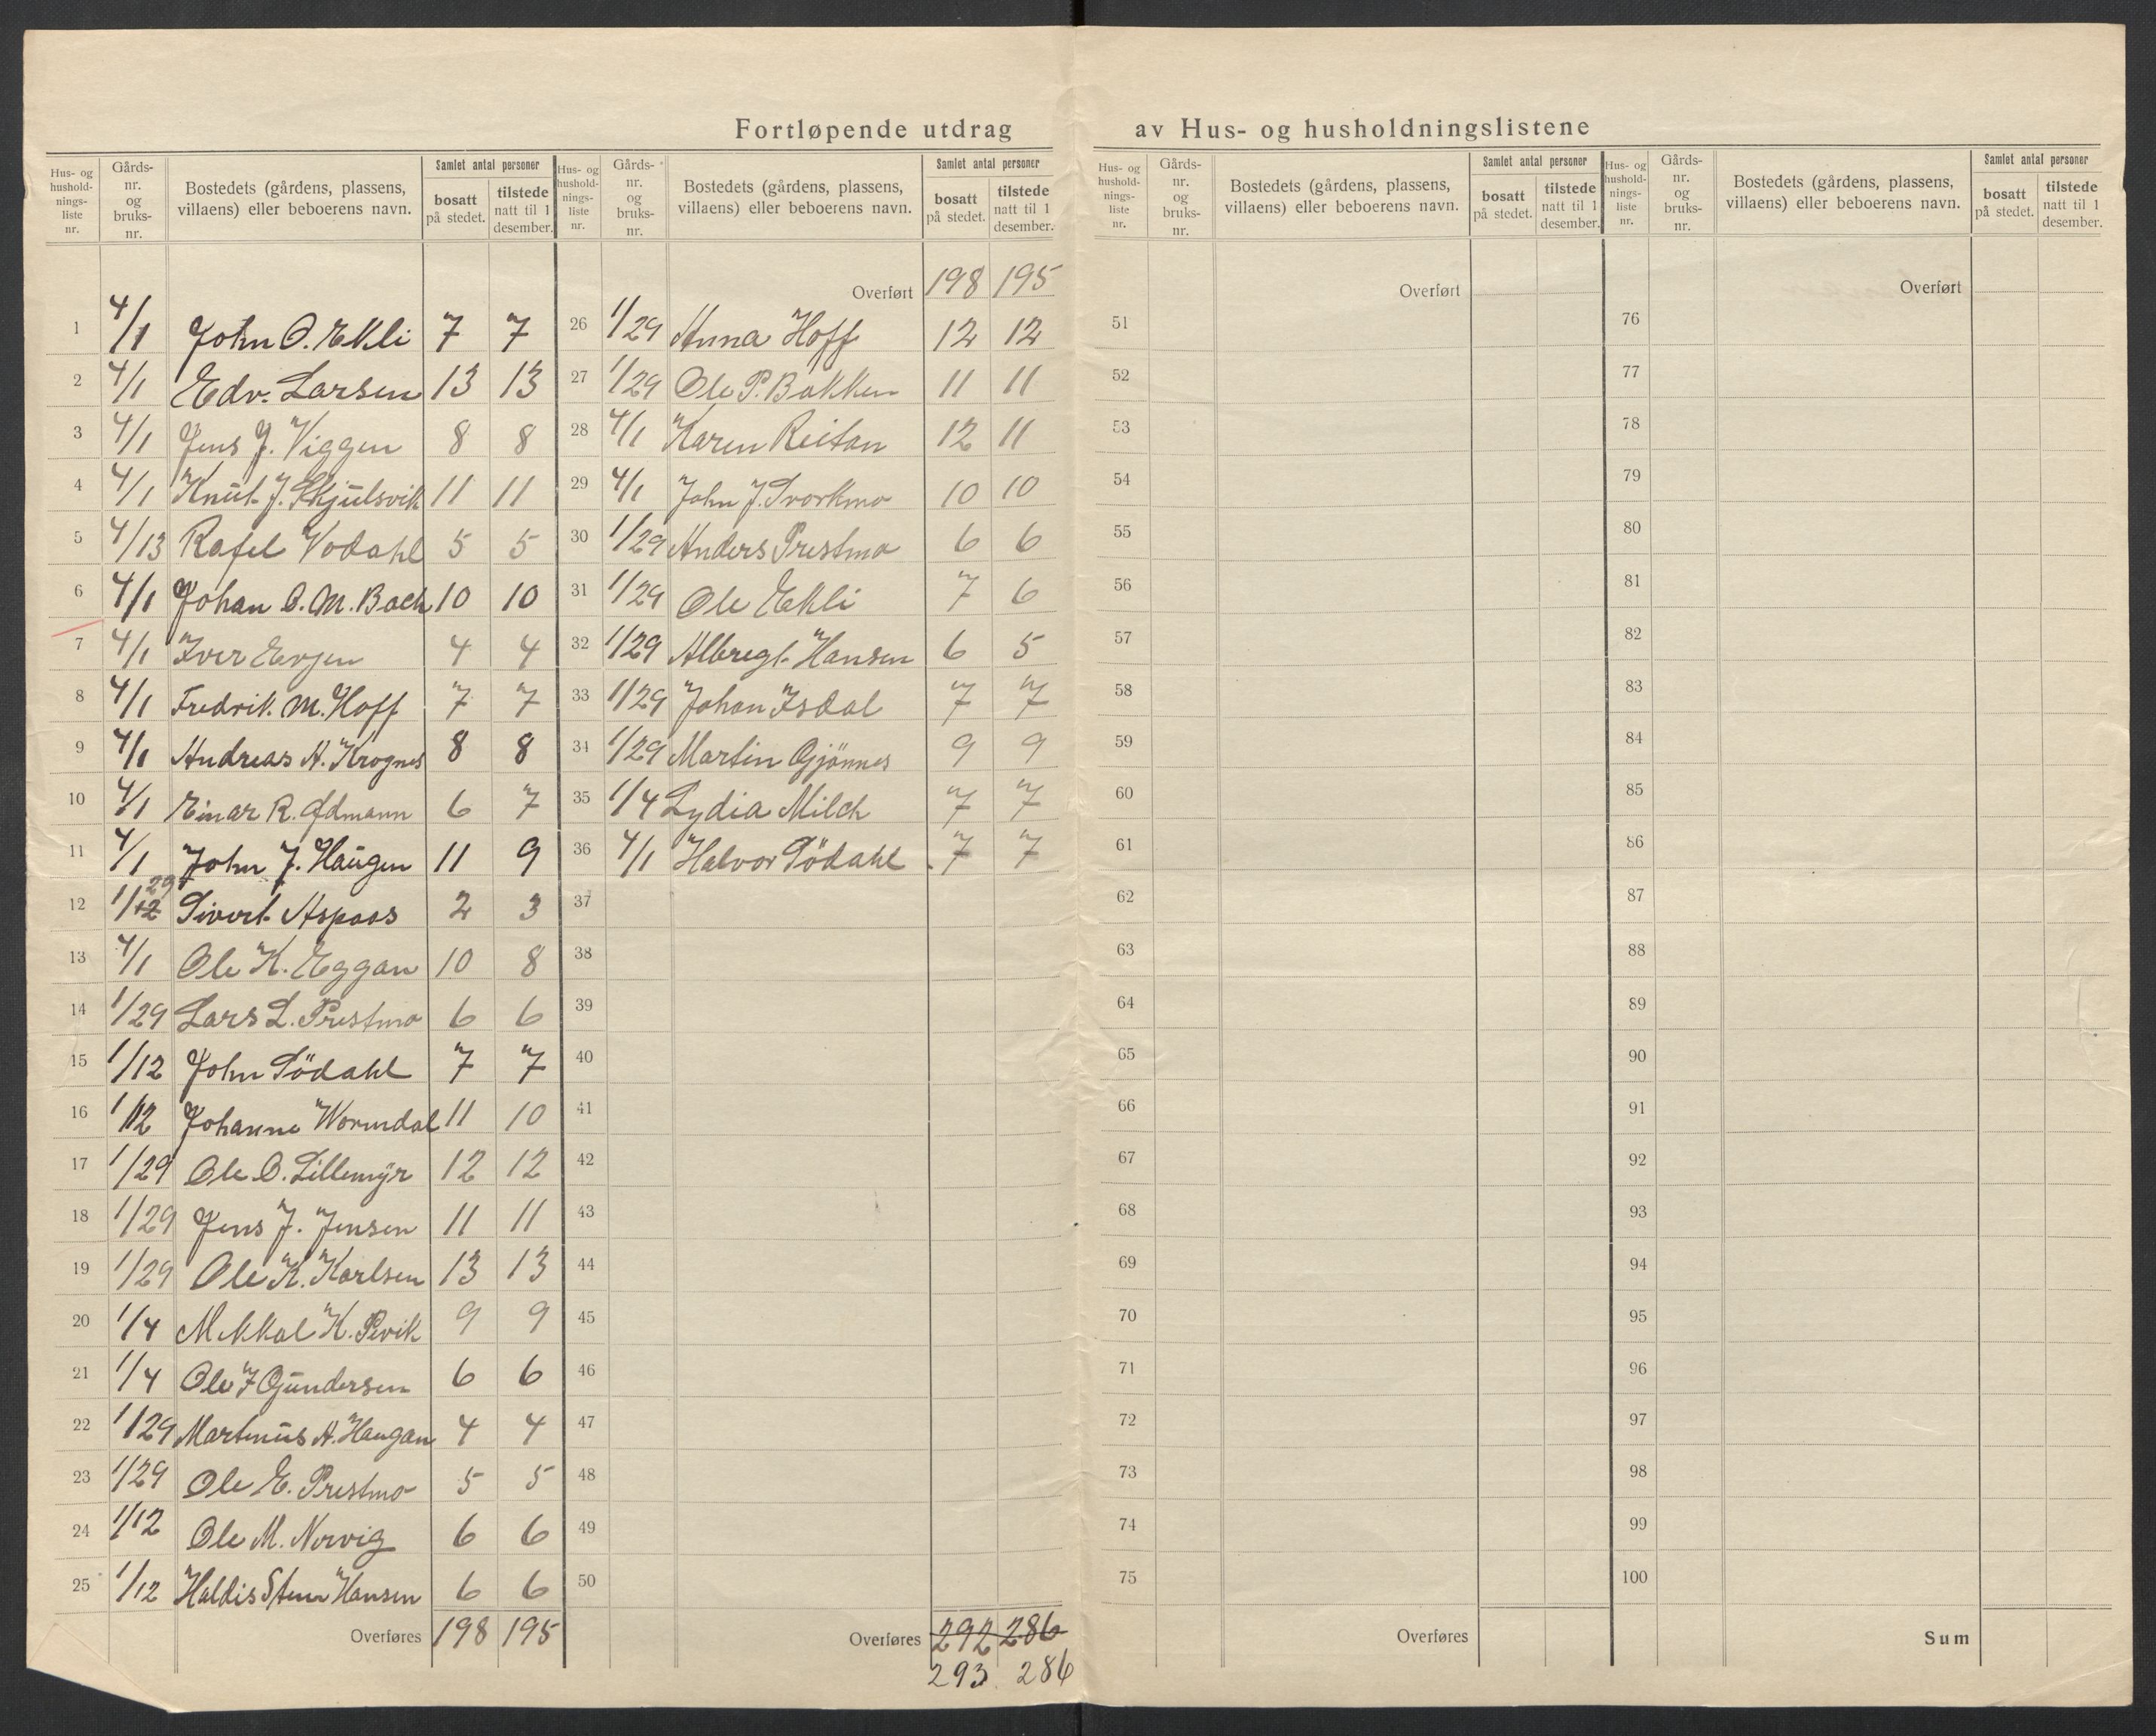 Fortløpende utdrag av Hus- og husholdningslistene
Hus- og hushold-nings-liste nr. | Gårds-nr. og bruks-nr. | Bostedets (gårdens, plassens, villaens) eller beboerens navn. | Samlet antal personer | bosatt på stedet. | tilstede natt til 1 desember.
1 4/1 John O. Ekli 7 7
2 4/1 Edv. Larsen 13 13
3 4/1 Jens J. Viggen 8 8
4 4/1 Knut J. Skjulsvik 11 11
5 4/13 Rafel Vodahl 5 5
6 4/1 Johan O. M. Bach 10 10
7 4/1 Iver Evjen 4 4
8 4/1 Fredrik M. Hoff 7 7
9 4/1 Andreas A. Krognes 8 8
10 4/1 Einar R. Ødmann 6 7
11 4/1 John J. Haugen 11 9
12 1/12 29 Sivert Aspaas 2 3
13 4/1 Ole K. Eggan 10 8
14 1/29 Lars L. Prestmo 6 6
15 1/12 John Södahl 7 7
16 1/12 Johanne Wormdal 11 10
17 1/29 Ole O. Lillemyr 12 12
18 1/29 Jens J. Jensen 11 11
19 1/29 Ole K. Karlsen 13 13
20 1/4 Mikkal K. 9 9
21 1/4 Ole J Gundersen 6 6
22 1/29 Martinus A. Haugan 4 4
23 1/29 Ole E. Prestmo 5 5
24 1/12 Ole M. Norvig 6 6
25 1/12 Haldis Stene Hansen 6 6
Overføres 198 195
Hus- og hushold-nings-liste nr. | Gårds-nr. og bruks-nr. | Bostedets (gårdens, plassens, villaens) eller beboerens navn. | Samlet antal personer | bosatt på stedet. | tilstede natt til 1 desember.
Overført 198 195
26 1/29 Anna Hoff 12 12
27 1/29 Ole P. Bakken 11 11
28 4/1 Karen Reitan 12 11
29 4/1 John J. Svorkmo 10 10
30 1/29 Anders Prestmo 6 6
31 1/29 Ole Ekli 7 6
32 1/29 Albregt Hansen 6 5
33 1/29 Johan Isdal 7 7
34 1/29 Martin Gjönnes 9 9
35 1/4 Lydia Milch 7 7
36 4/1 Halvor Södahl 7 7
37
38
39
40
41
42
43
44
45
46
47
48
49
50
Overføres 292 286
293 286
Hus- og hushold-nings-liste nr. | Gårds-nr. og bruks-nr. | Bostedets (gårdens, plassens, villaens) eller beboerens navn. | Samlet antal personer | bosatt på stedet. | tilstede natt til 1 desember.
Overført
51
52
53
54
55
56
57
58
59
60
61
62
63
64
65
66
67
68
69
70
71
72
73
74
75
Overføres
Hus- og hushold-nings-liste nr. | Gårds-nr. og bruks-nr. | Bostedets (gårdens, plassens, villaens) eller beboerens navn. | Samlet antal personer | bosatt på stedet. | tilstede natt til 1 desember.
Overført
76
77
78
79
80
81
82
83
84
85
86
87
88
89
90
91
92
93
94
95
96
97
98
99
100
Sum